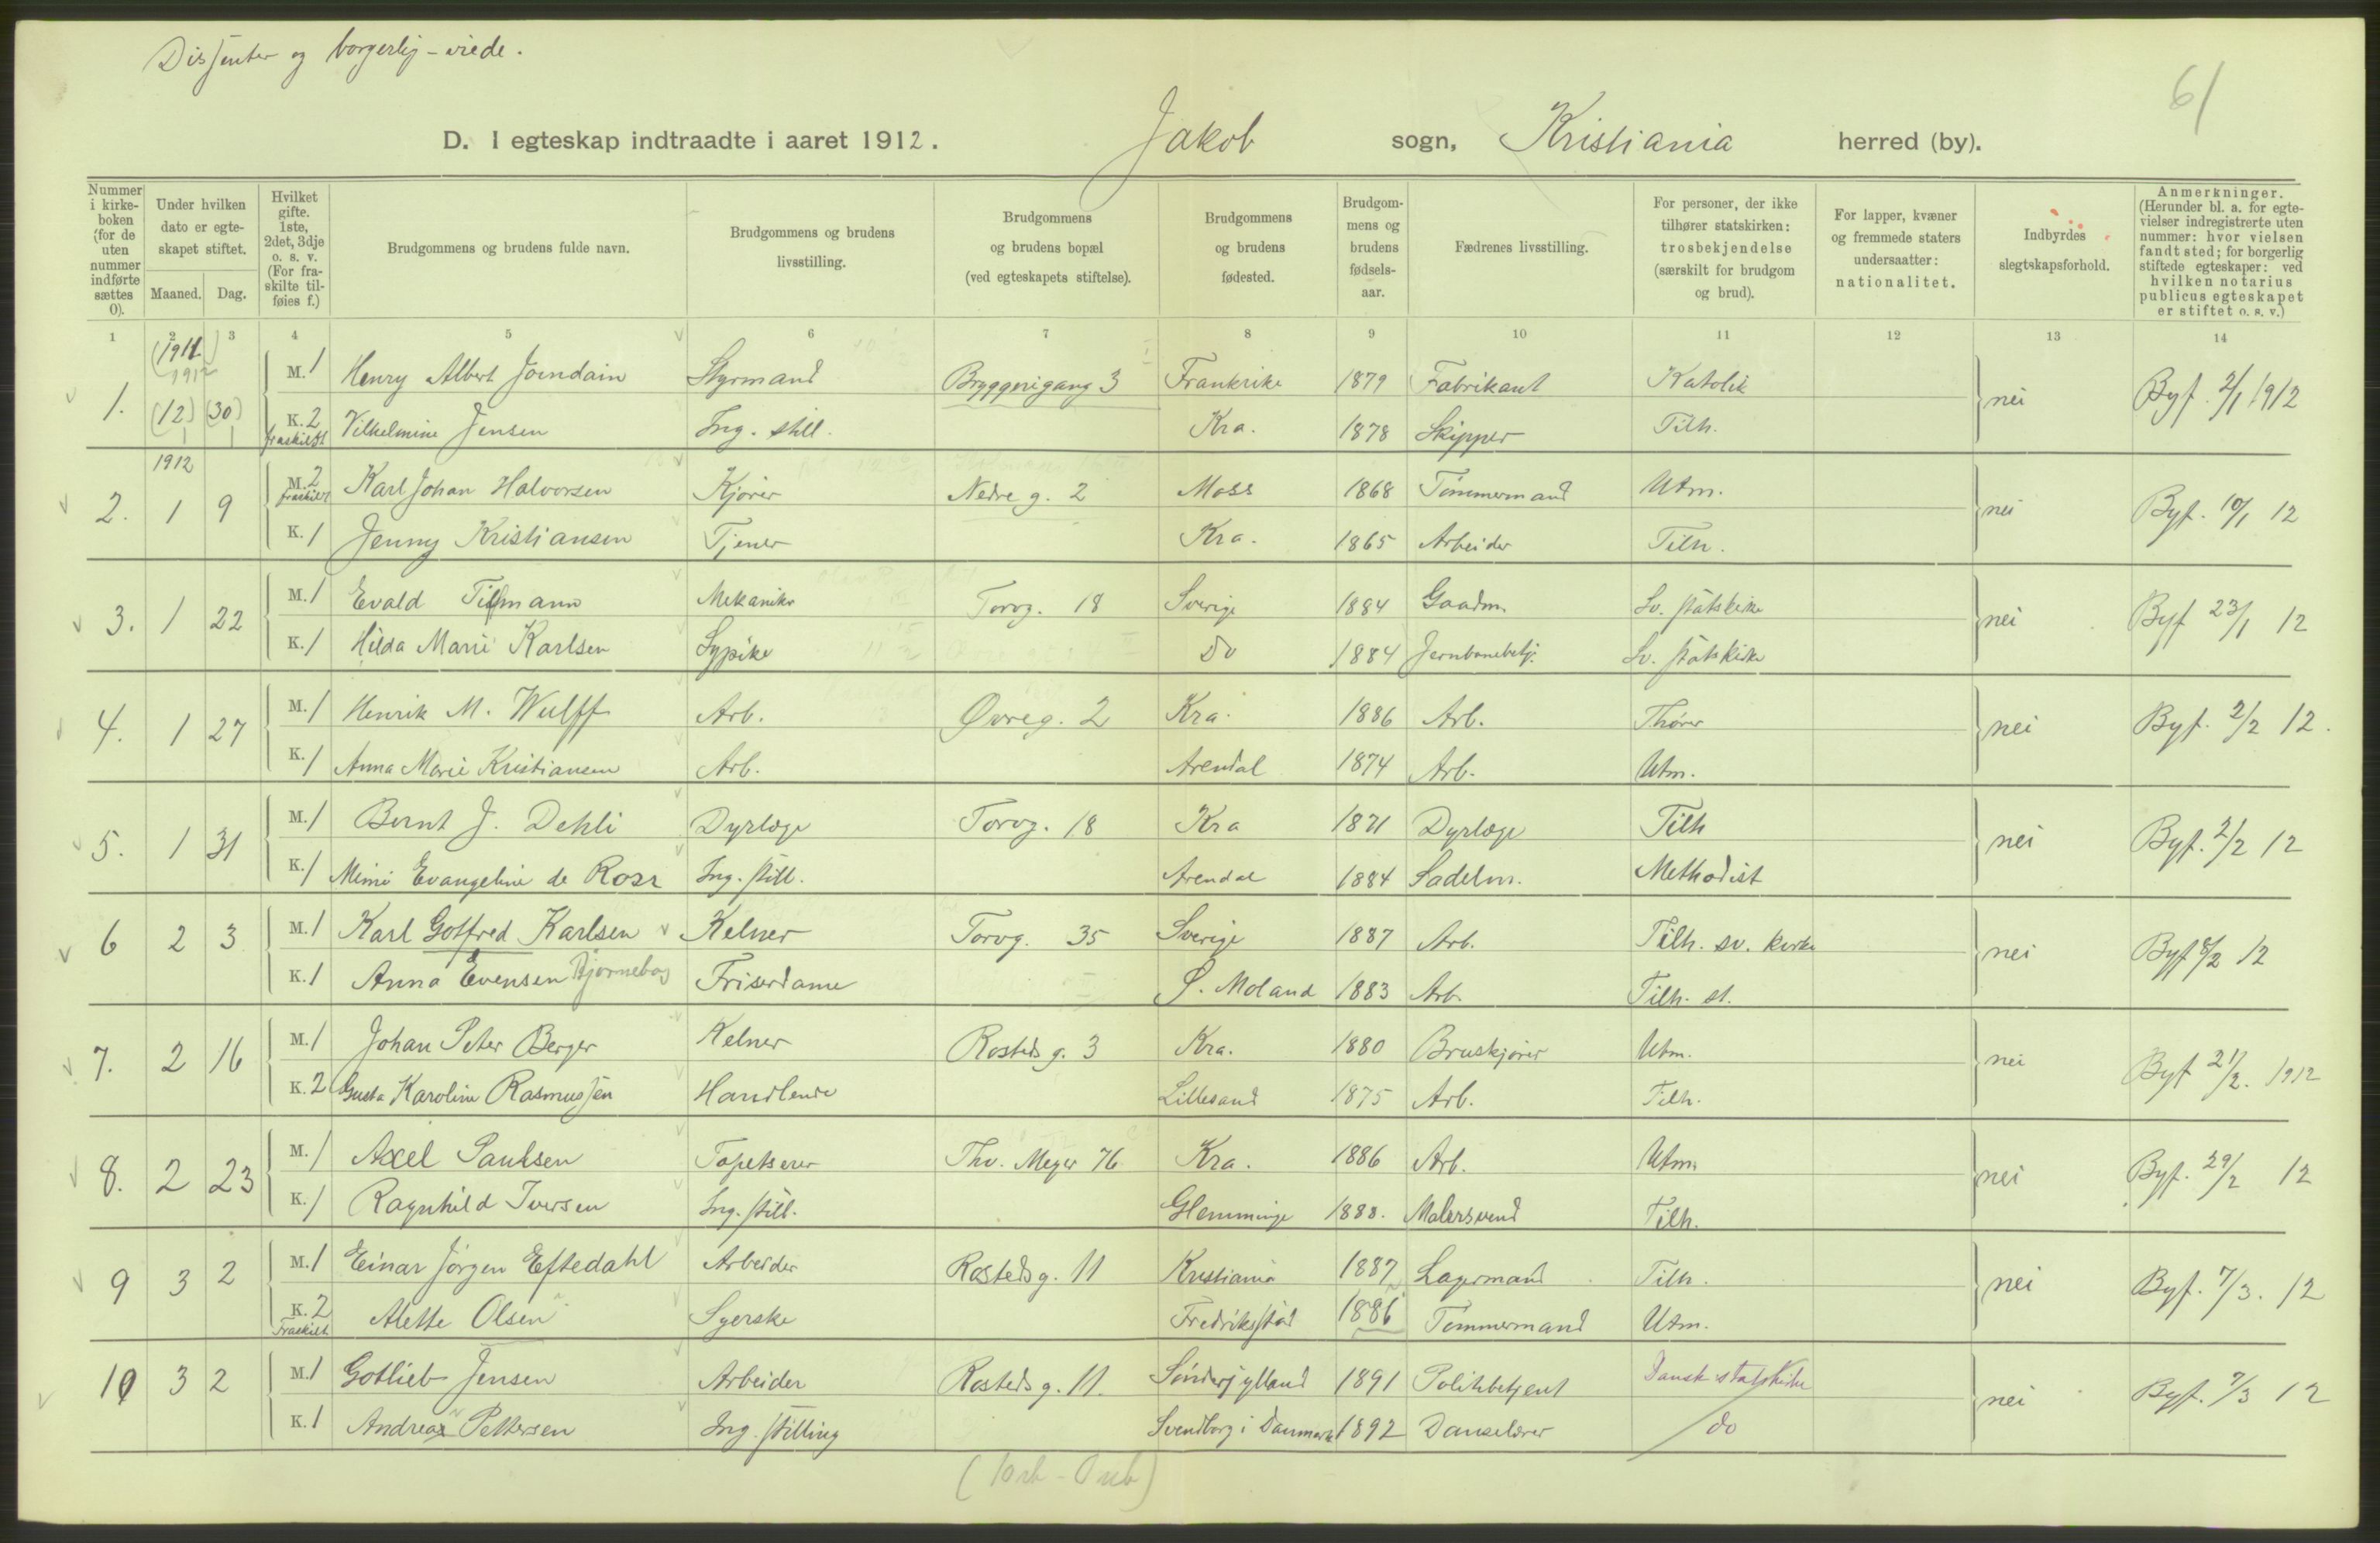 Dissenter og borgerlig-viede.
61
D. I egteskap indtraadte i aaret 1912. Jakob sogn, Kristiania herred (by).
Nummer i kirkeboken (for de uten nummer indførte sættes 0).
Under hvilken dato er egteskapet stiftet.
Maaned. Dag.
Hvilket gifte. 1ste, 2det, 3dje o. s. v. (For fraskilte tilføies f.)
Brudgommens og brudens fulde navn.
Brudgommens og brudens livsstilling.
Brudgommens og brudens bopæl (ved egteskapets stiftelse).
Brudgommens og brudens fødested.
Brudgommens og brudens fødselsaar.
Fædrenes livsstilling.
For personer, der ikke tilhører statskirken: trosbekjendelse (særskilt for brudgom og brud).
For lapper, kvæner og fremmede staters undersaatter: nationalitet.
Indbyrdes slegtskapsforhold.
Anmerkninger. (Herunder bl. a. for egtevielser indregistrerte uten nummer: hvor vielsen fandt sted; for borgerlig stiftede egteskaper: ved hvilken notarius publicus egteskapet er stiftet o. s. v.)
1 2 3 4 5 6 7 8 9 10 11 12 13 14
(1911) 1912
1. (12) (30) M. 1 Henry Albert Joindain Styrmand Bryggerigang 3 Frankrike 1879 Fabrikant Katolik nei Byf. 2/1 1912
1 1 K. 2 fraskilt Vilhelmine Jensen Ing. still. Kra. 1878 Skipper Tilh.
1912
2. 1 9 M. 2 fraskilt Karl Johan Halvorsen Kjører Nedre g. 2 Moss 1868 Tømmermand Utm. nei Byf. 10/1 12
K. 1 Jenny Kristiansen Tjener Kra. 1865 Arbeider Tilh.
3. 1 22 M. 1 Evald Tillmann Mekaniker Torvg. 18 Sverige 1884 Gaadm. Sv. statskirke nei Byf 23/1 12
K. 1 Hilda Marie Karlsen Sypike Do 1884 Jernbanebetj. Sv. statskirke
4. 1 27 M. 1 Henrik M. Wulff Arb. Øvreg. 2 Kra. 1886 Arb. nei Byf. 2/2 12.
K. 1 Anna Marie Kristiansen Arb. Arendal 1874 Arb. Utm.
5. 1 31 M. 1 Bernt J. Dehli Dyrlæge Torvg. 18 Kra 1871 Dyrlæge Tilh nei Byf. 2/2 12
K. 1 Mimi Evangeline de Rosz Ing. still. Arendal 1884 Sadelm. Methodist
6 2 3 M. 1 Karl Gotfred Karlsen Kelner Torvg. 35 Sverige 1887 Arb. Tilh. sv. kirke nei Byf 8/2 12
K. 1 Anna Evensen Bjørnebog Friserdame S. Moland 1883 Arb. Tilh. st.
7. 2 16 M. 1 Johan Peter Berger Kelner Rosteds g. 3 Kra. 1880 Bruskjører Utm. nei Byf 21/2. 1912
K. 2 Gusta Karoline Rasmussen Handlende Lillesand 1875 Arb. Tilh.
8. 2 23 M. 1 Axel Paulsen Tapetserer Thv. Meyer 76 Kra. 1886 Arb. Utm. nei Byf. 29/2 12
K. 1 Ragnhild Iversen Ing. still. Glemminge 1888. Malersvend Tilh.
9 3 2 M. 1 Einar Jørgen Eftedahl Arbeider Rostedsg. 11 Kristiania 1887 Lagermand Tilh. nei Byf. 7/3. 12
K. 2 Fraskilt Alette Olsen Syerske Fredriksstad 1886 Tømmermand Utm.
10 3 2 M. 1 Gotlieb Jensen Arbeider Rosteds g. 11. Sønderjylland 1891 Politibetjent Dansk statskirke nei Byf. 7/3 12
K. 1 Andrea Pettersen Ing. stilling Svendborg i Danmark 1892 Danselærer do